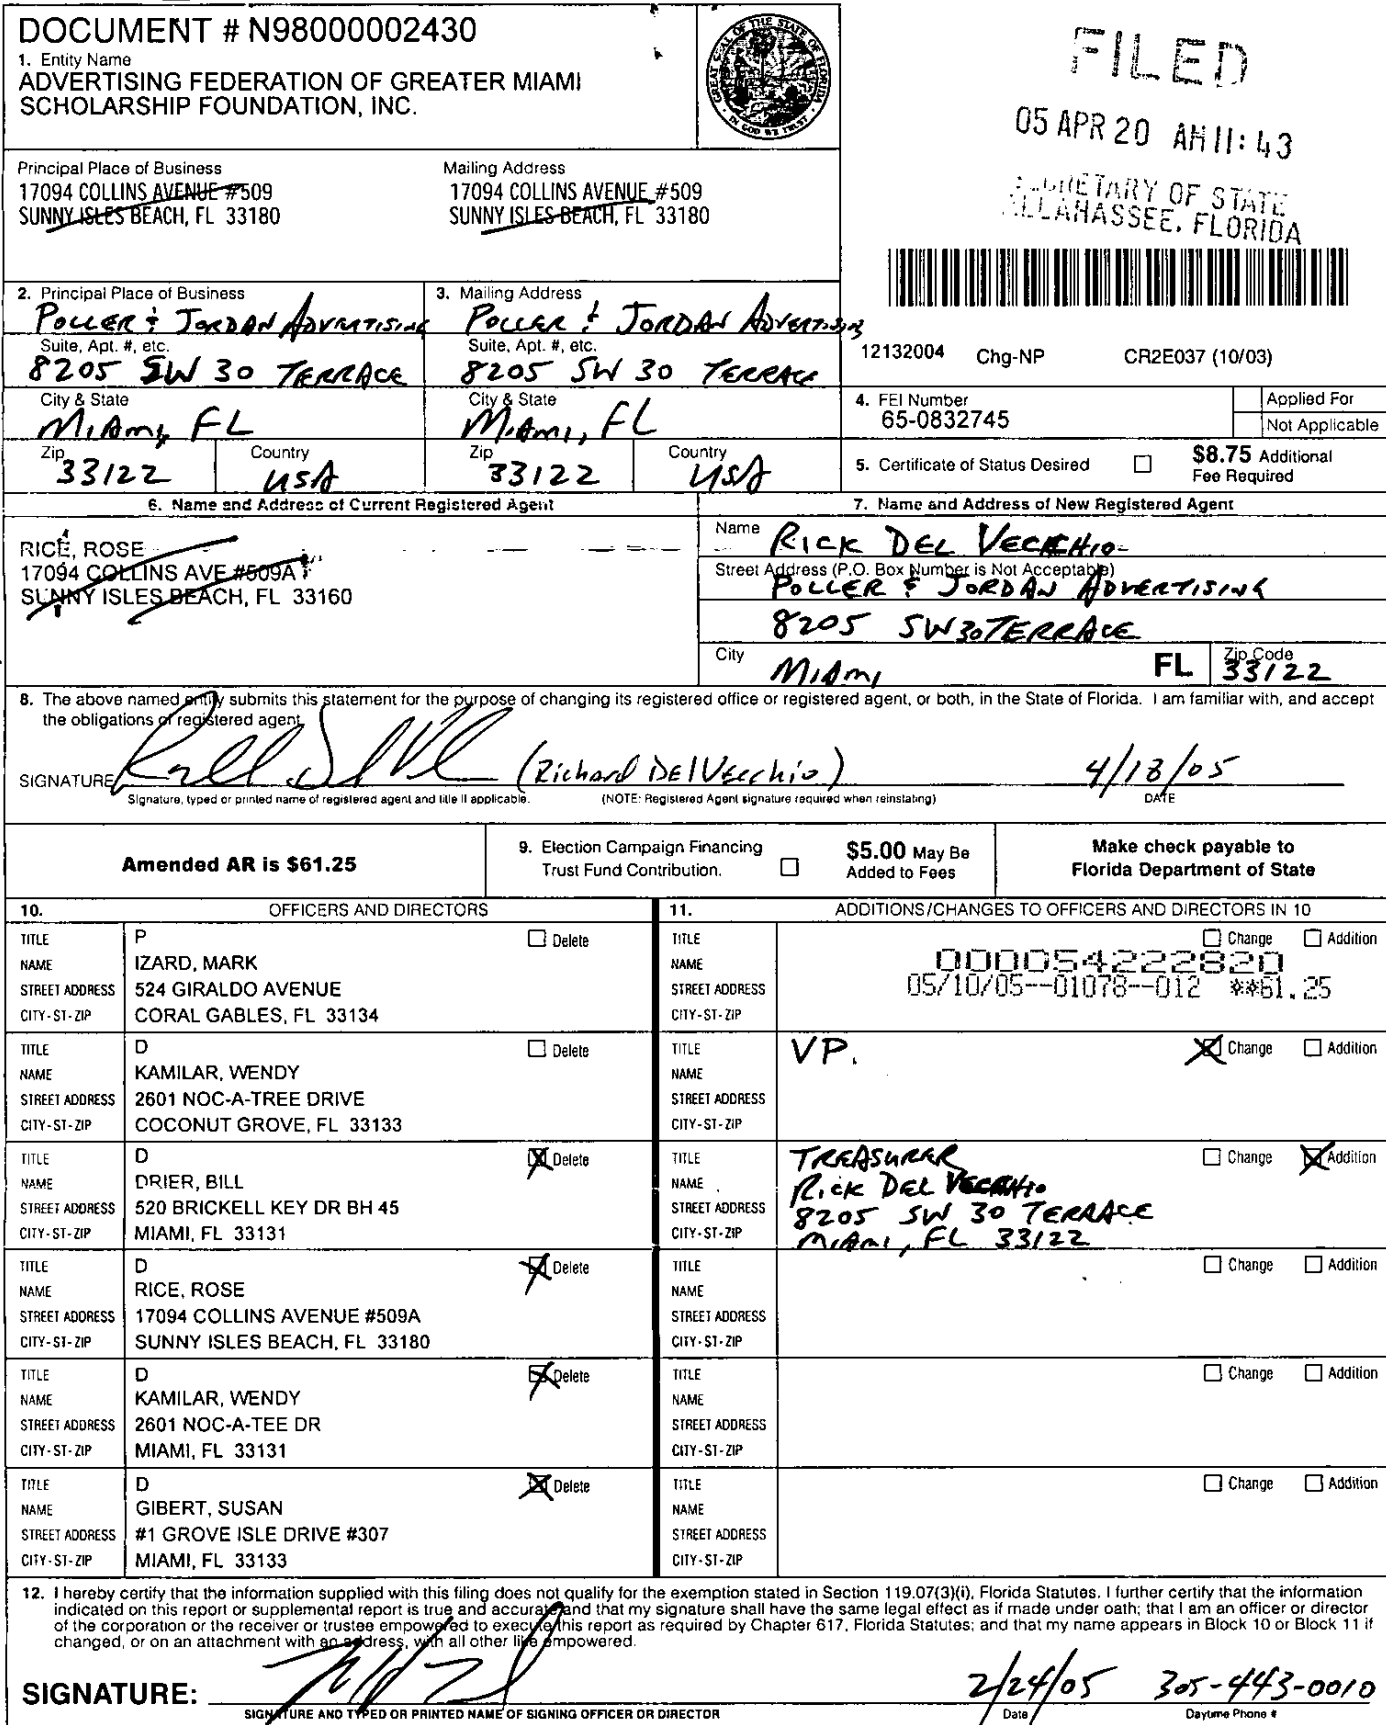 DOCUMENT # N98000002430
1. Entity Name
ADVERTISING FEDERATION OF GREATER MIAMI
SCHOLARSHIP FOUNDATION, INC.
GREAT SEAL OF THE STATE OF FLORIDA
IN GOD WE TRUST
FILED
05 APR 20 AM 11:43
OF STATE
FLORIDA
Principal Place of Business
17094 COLLINS AVENUE #509
SUNNY ISLES BEACH, FL 33180
Mailing Address
17094 COLLINS AVENUE #509
SUNNY ISLES BEACH, FL 33180
2. Principal Place of Business
POLLER & JORDAN ADVERTISING
Suite, Apt. #, etc.
8205 SW 30 TERRACE
City & State
MIAMI, FL
Zip
33122
Country
USA
3. Mailing Address
POLLER & JORDAN ADVERTISING
Suite, Apt. #, etc.
8205 SW 30 TERRACE
City & State
MIAMI, FL
Zip
33122
Country
USA
12132004 Chg-NP CR2E037 (10/03)
4. FEI Number
65-0832745
Applied For
Not Applicable
5. Certificate of Status Desired
$8.75 Additional
Fee Required
6. Name and Address of Current Registered Agent
RICE, ROSE
17094 COLLINS AVE #509A
SUNNY ISLES BEACH, FL 33160
7. Name and Address of New Registered Agent
Name RICK DEL VECCHIO
Street Address (P.O. Box Number is Not Acceptable)
POLLER & JORDAN ADVERTISING
8205 SW 30 TERRACE
City MIAMI FL Zip Code 33122
8. The above named entity submits this statement for the purpose of changing its registered office or registered agent, or both, in the State of Florida. I am familiar with, and accept
the obligations of registered agent
SIGNATURE (Richard DelVecchio) 4/18/05
Signature, typed or printed name of registered agent and title if applicable. (NOTE: Registered Agent signature required when reinstating) DATE
Amended AR is $61.25
9. Election Campaign Financing
Trust Fund Contribution.
$5.00 May Be
Added to Fees
Make check payable to
Florida Department of State
10. OFFICERS AND DIRECTORS
11. ADDITIONS/CHANGES TO OFFICERS AND DIRECTORS IN 10
TITLE P Delete
NAME IZARD, MARK
STREET ADDRESS 524 GIRALDO AVENUE
CITY-ST-ZIP CORAL GABLES, FL 33134
TITLE Change Addition
NAME 000054222820
STREET ADDRESS 05/10/05--01078--012 **61.25
CITY-ST-ZIP
TITLE D Delete
NAME KAMILAR, WENDY
STREET ADDRESS 2601 NOC-A-TREE DRIVE
CITY-ST-ZIP COCONUT GROVE, FL 33133
TITLE VP. Change Addition
NAME
STREET ADDRESS
CITY-ST-ZIP
TITLE D Delete
NAME DRIER, BILL
STREET ADDRESS 520 BRICKELL KEY DR BH 45
CITY-ST-ZIP MIAMI, FL 33131
TITLE TREASURER Change Addition
NAME RICK DEL VECCHIO
STREET ADDRESS 8205 SW 30 TERRACE
CITY-ST-ZIP MIAMI, FL 33122
TITLE D Delete
NAME RICE, ROSE
STREET ADDRESS 17094 COLLINS AVENUE #509A
CITY-ST-ZIP SUNNY ISLES BEACH, FL 33180
TITLE Change Addition
NAME
STREET ADDRESS
CITY-ST-ZIP
TITLE D Delete
NAME KAMILAR, WENDY
STREET ADDRESS 2601 NOC-A-TEE DR
CITY-ST-ZIP MIAMI, FL 33131
TITLE Change Addition
NAME
STREET ADDRESS
CITY-ST-ZIP
TITLE D Delete
NAME GIBERT, SUSAN
STREET ADDRESS #1 GROVE ISLE DRIVE #307
CITY-ST-ZIP MIAMI, FL 33133
TITLE Change Addition
NAME
STREET ADDRESS
CITY-ST-ZIP
12. I hereby certify that the information supplied with this filing does not qualify for the exemption stated in Section 119.07(3)(i), Florida Statutes. I further certify that the information
indicated on this report or supplemental report is true and accurate and that my signature shall have the same legal effect as if made under oath; that I am an officer or director
of the corporation or the receiver or trustee empowered to execute this report as required by Chapter 617, Florida Statutes; and that my name appears in Block 10 or Block 11 if
changed, or on an attachment with an address, with all other like empowered.
SIGNATURE: 2/24/05 305-443-0010
SIGNATURE AND TYPED OR PRINTED NAME OF SIGNING OFFICER OR DIRECTOR Date Daytime Phone #